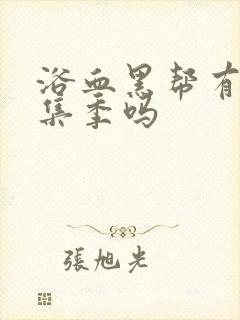 浴血黑帮有
集季吗
張旭光